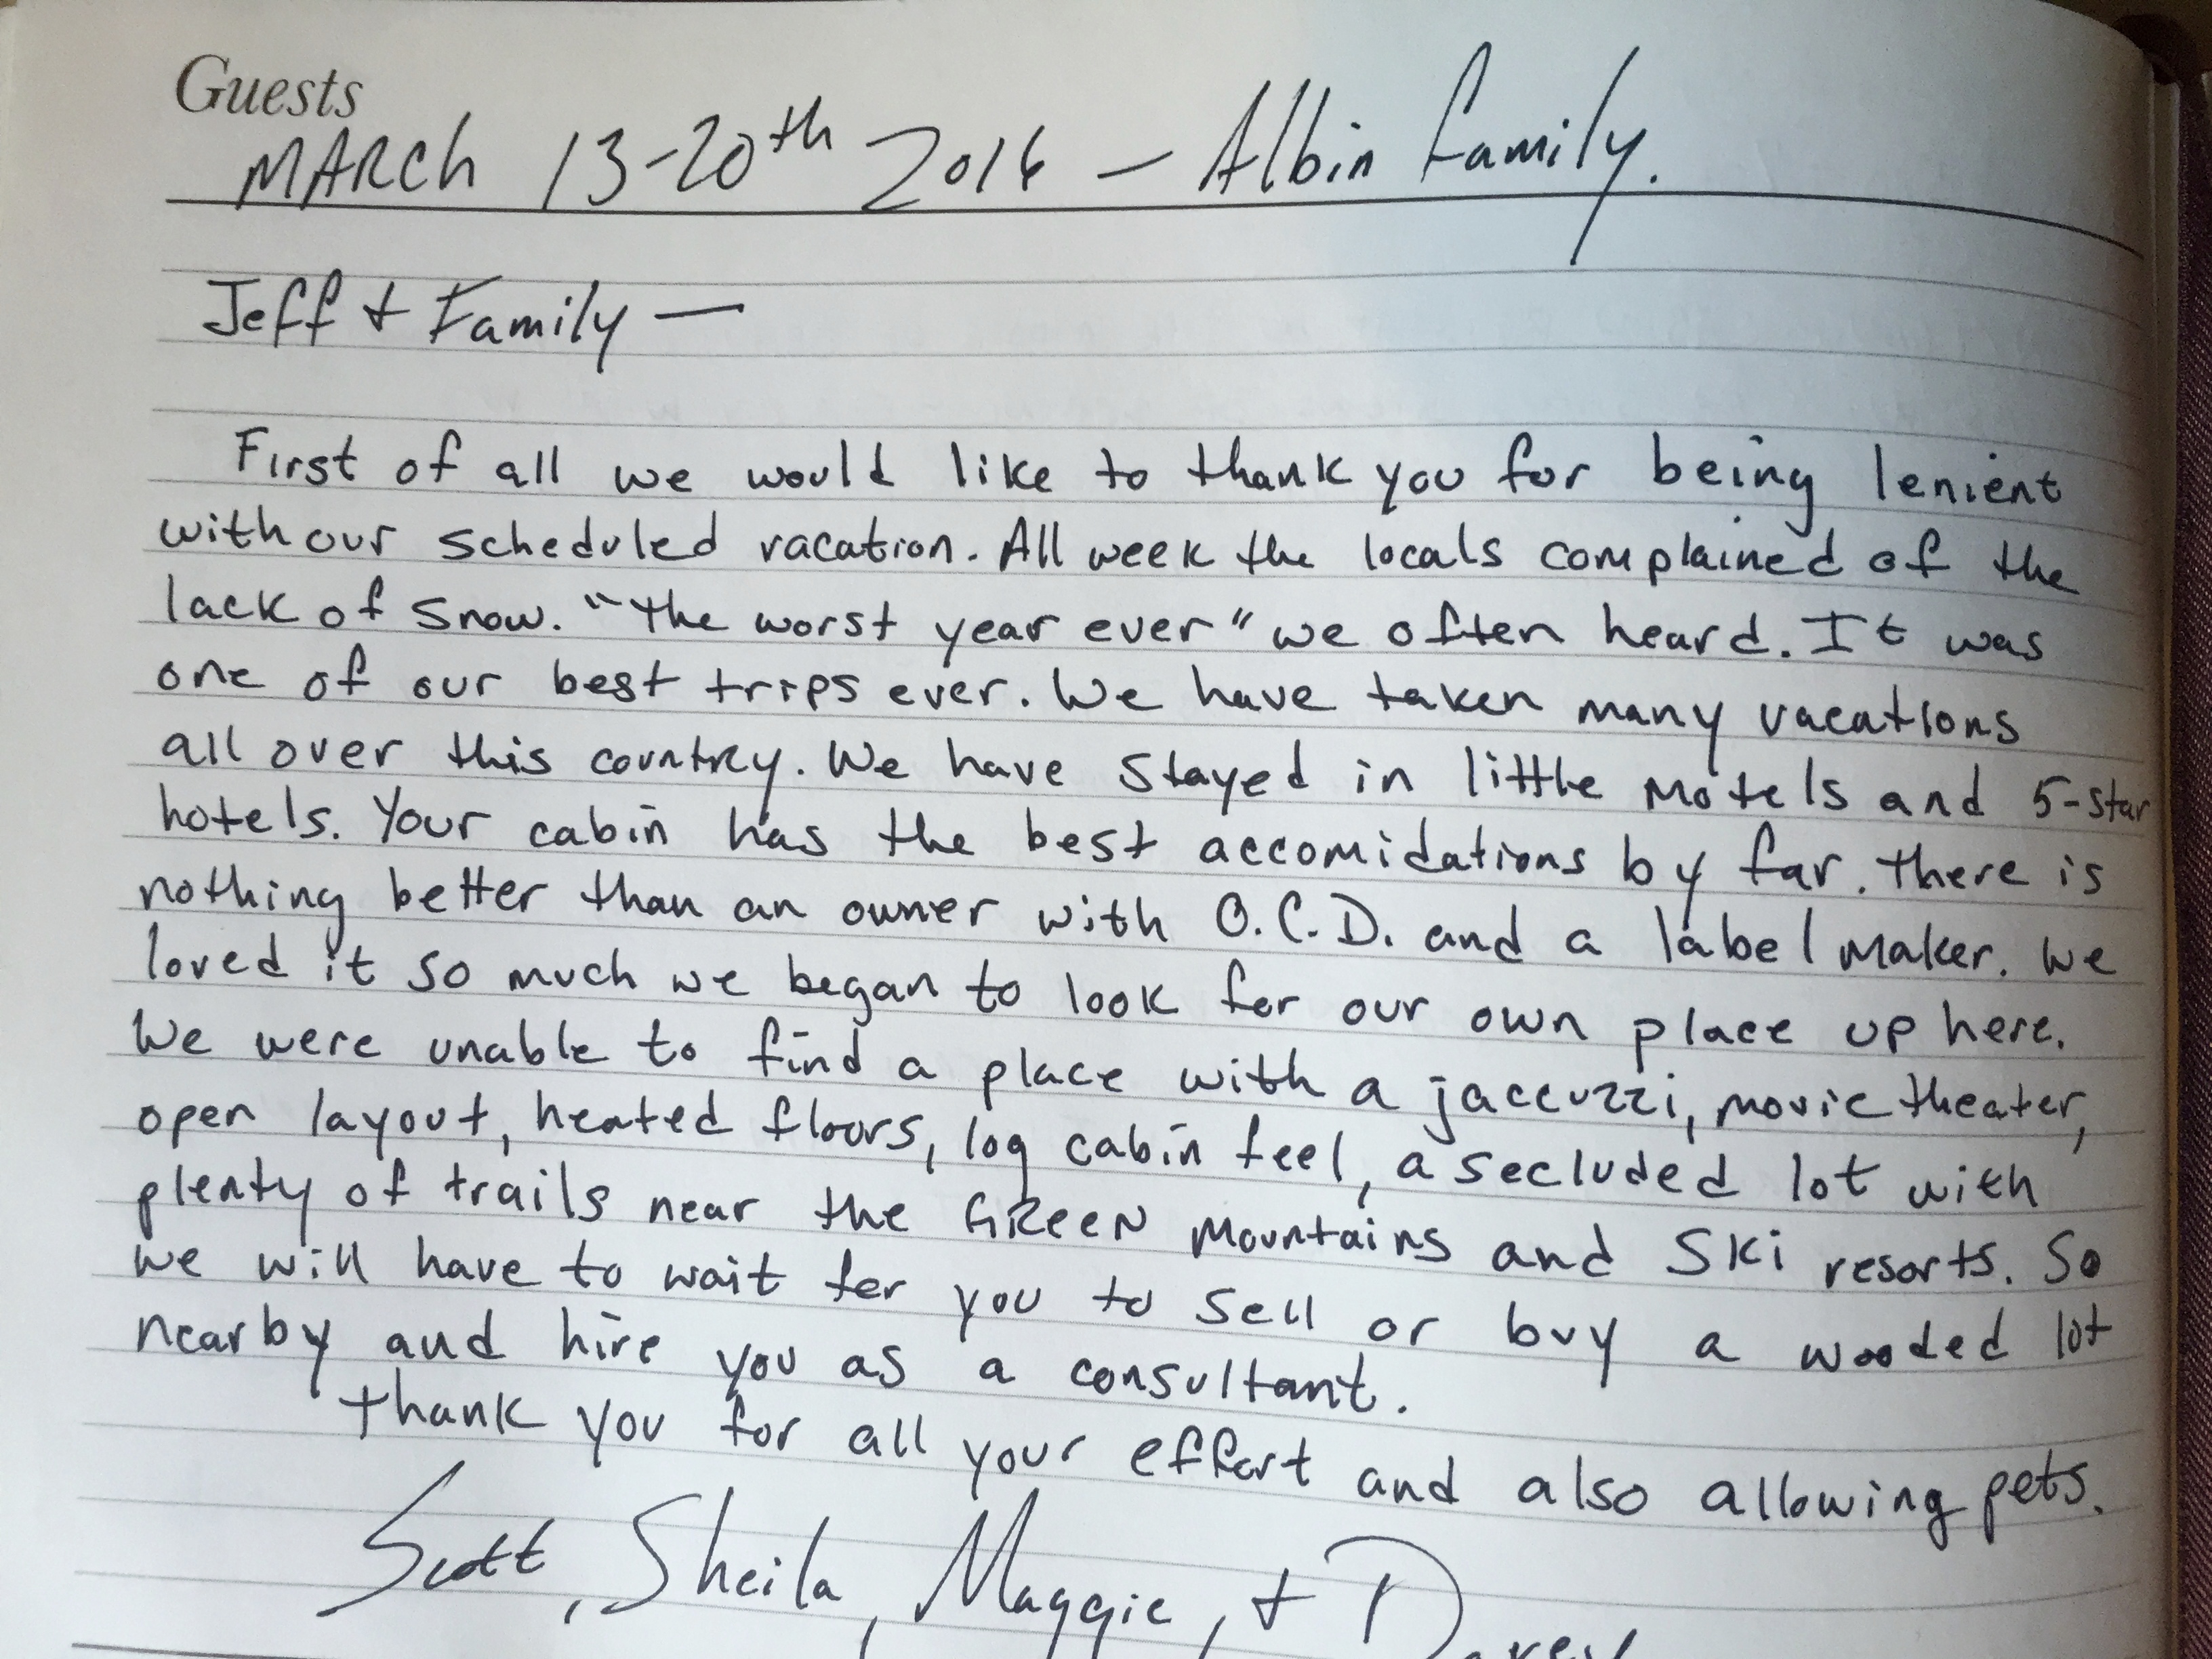 Guests
MARCh 13-20th 2016 — Albin family.
Jeff + Family —
First of all we would like to thank you for being lenient
with our scheduled vacation. All week the locals complained of the
lack of snow. "the worst year ever" we often heard. It was
one of our best trips ever. We have taken many vacations
all over this country. We have stayed in little motels and 5-star
hotels. Your cabin has the best accomidations by far. There is
nothing better than an owner with O.C.D. and a label maker. We
loved it so much we began to look for our own place up here.
We were unable to find a place with a jaccuzzi, movie theater,
open layout, heated floors, log cabin feel, a secluded lot with
plenty of trails near the GReeN Mountains and Ski resorts. So
we will have to wait for you to sell or buy a wooded lot
nearby and hire you as a consultant.
Thank you for all your effort and also allowing pets.
Scott, Sheila, Maggie, +